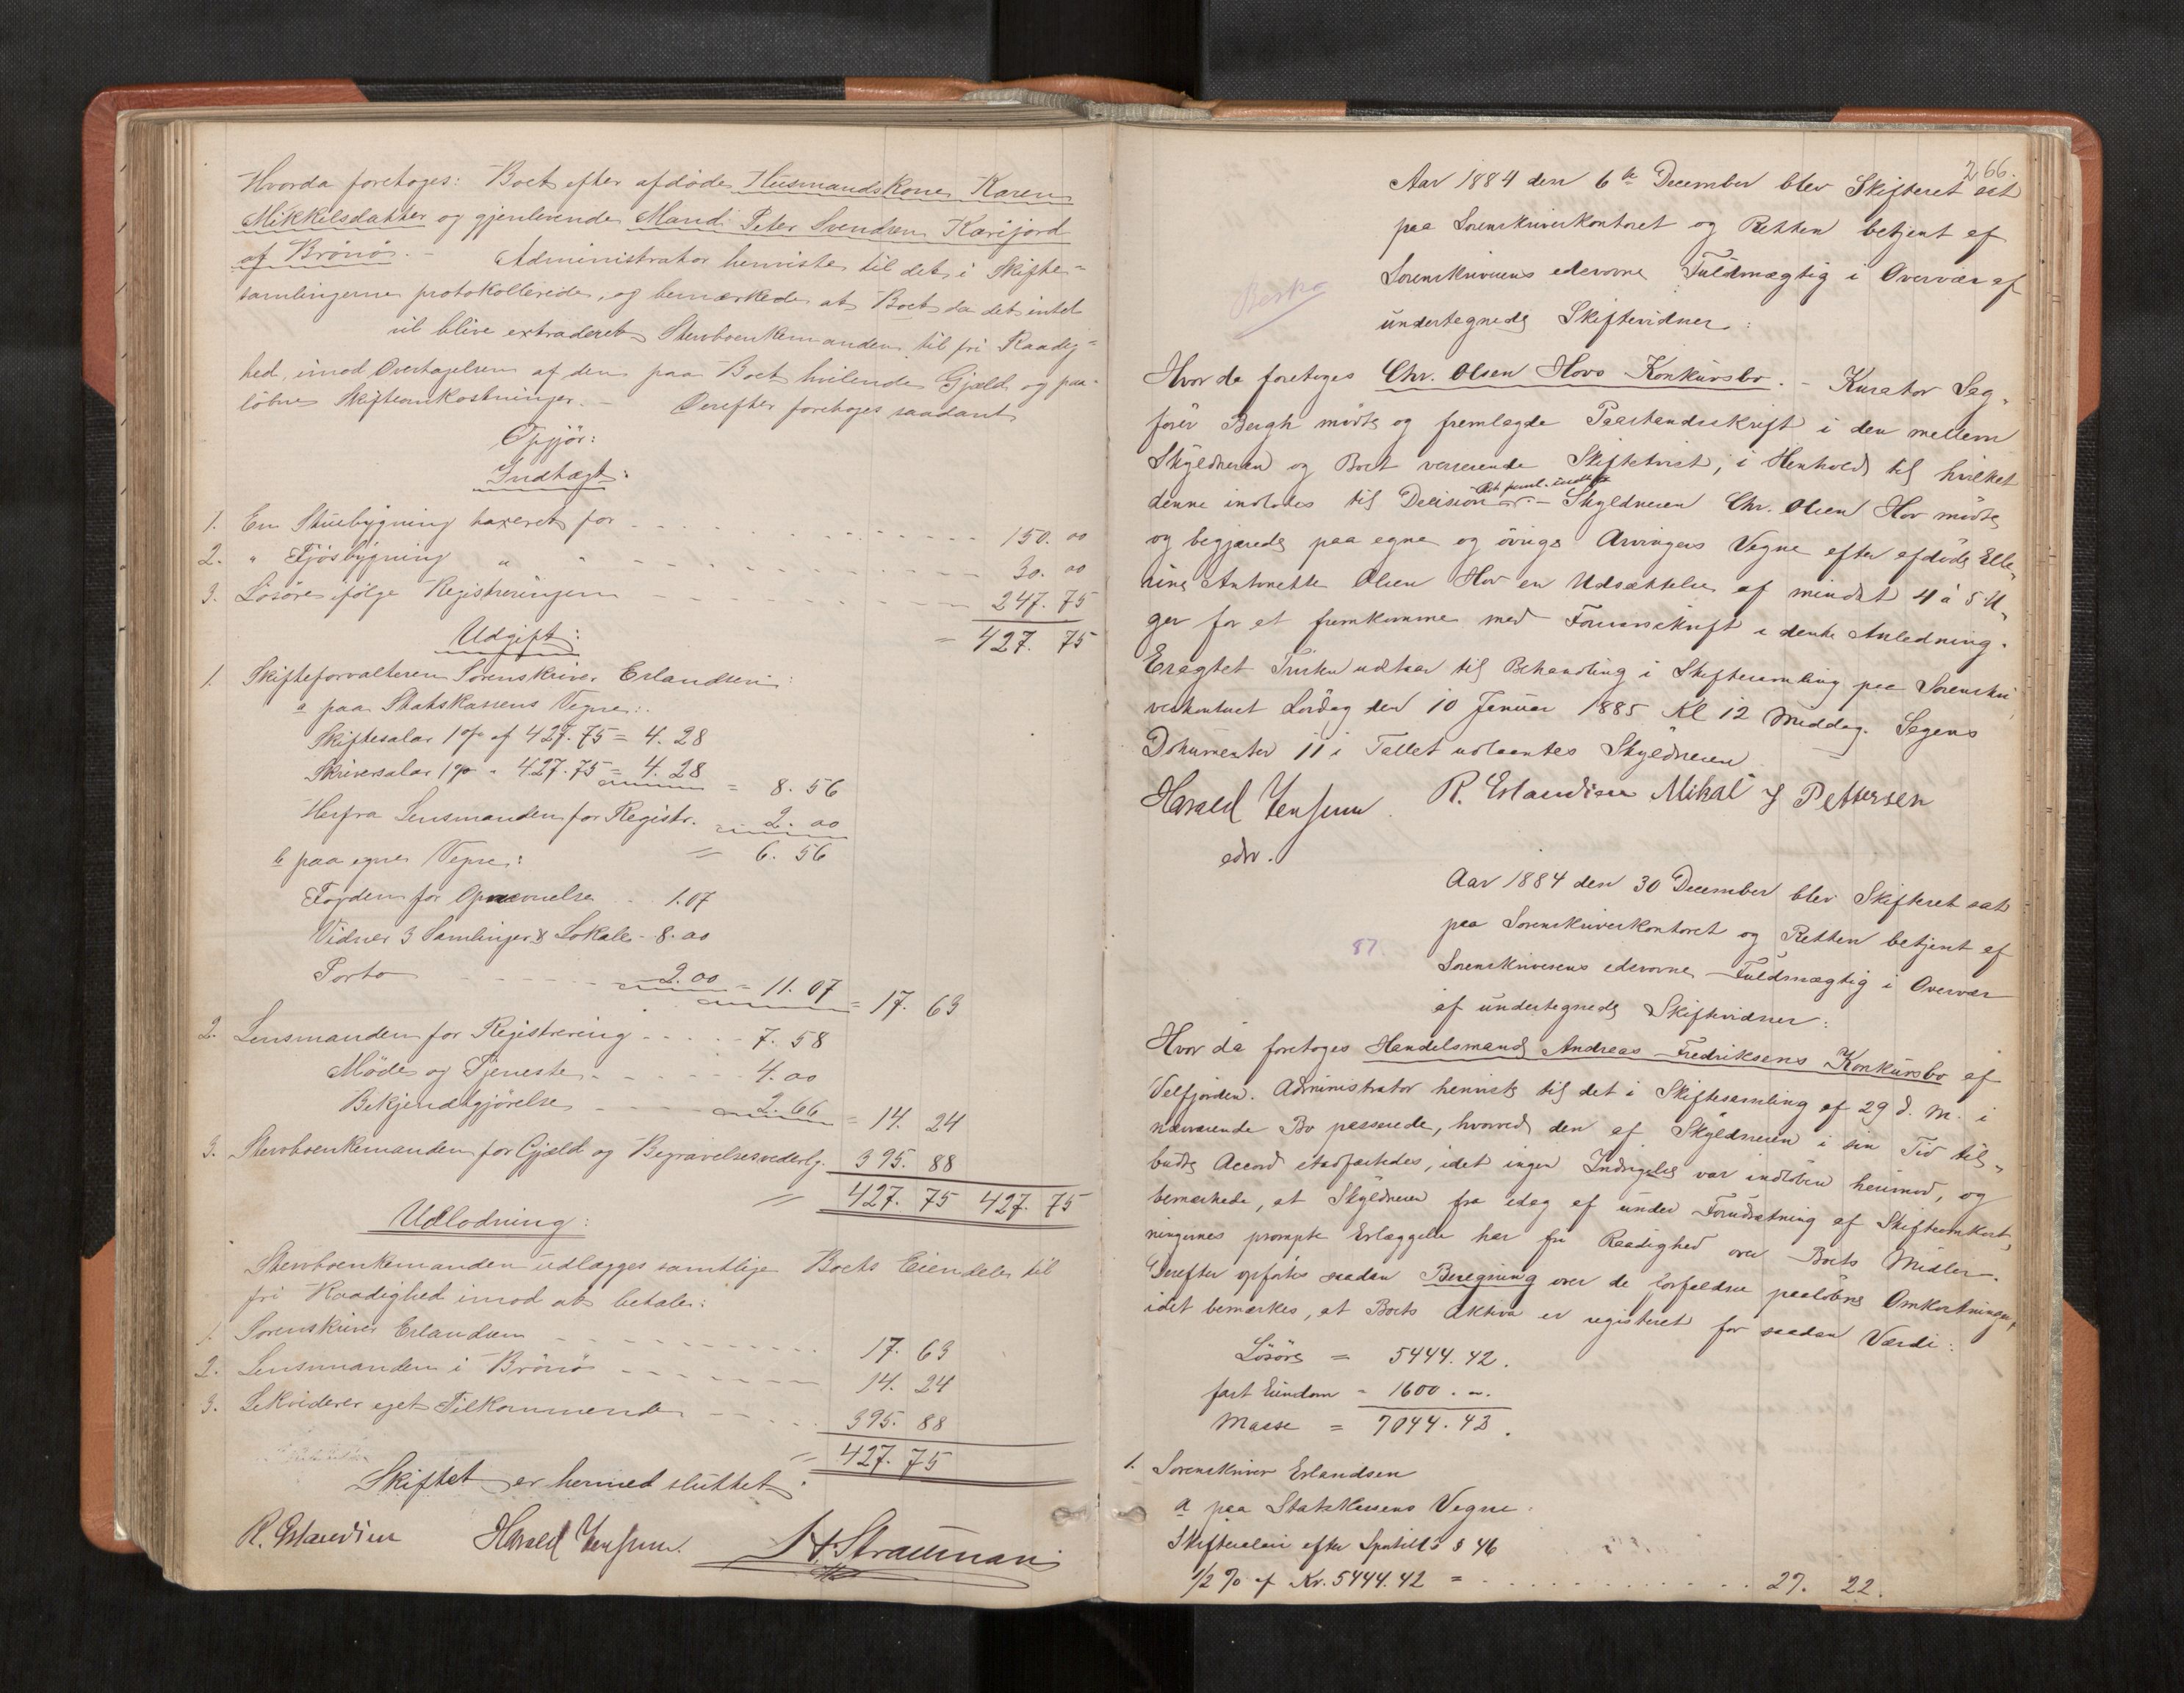 Hvorda foretoges: Boet efter afdøde Husmandskone Karen
Mikkelsdatter og gjenlevende Mand Peter Svendsen Karifjord
af Brönö. – Administrator henviste til det i Skifte=
samlingerne protokollerede, og bemærkede at Boet da det intet
vil blive extraderet Stervboenkemanden til fri Raadig=
hed, imod Overtagelsen af den paa Boet hvilende Gjæld og paa-
löbne Skifteomkostninger. – Derefter foretoges saadant
Opgjör:
Indtægt:
1. En Stuebygning taxeret for 150. 00
2. " Fjösbygning " " 30. 00
3. Lösöre ifölge Registreringen 247. 75
= 427. 75
Udgift:
1. Skifteforvalteren Sorenskriver Erlandsen:
a paa Statskassens Vegne:
Skiftesalar 1 % af 427. 75 = 4. 28
Skriversalar 1 % " 427. 75 = 4. 28 = 8. 56
Herfra Lensmanden for Registr. 2. 00
= 6. 56
b paa egne Vegne:
Fogden for Opnævnelse 1.07
Vidner 3 Samlinger & Lokale - 8. 00
Porto 2. 00 = 11. 07 = 17. 63
2. Lensmanden for Registrering 7. 58
Möde og Tjeneste 4. 00
Bekjendtgjörelse 2. 66 = 14. 24
3. Stervboenkemanden for Gjæld og Begravelsesvederlg. 395. 88
= 427. 75 427. 75
Udlodning:
Stervboenkemanden udlægges samtlige Boets Eiendele til
fri Raadighed imod at betale:
1. Sorenskriver Erlandsen 17. 63
2. Lensmanden i Brönö 14. 24
3. Likviderer eget Tilkommende 395. 88
= 427. 75
Skiftet er hermed sluttet.
R. Erlandsen Harald Jensen. H. Straumann
266.
Aar 1884 den 6te December blev Skifteret sat
paa Sorenskriverkontoret og Retten betjent af
Sorenskriverens edsvorne Fuldmægtig i Overvær af
undertegnede Skiftevidner:
Hvor da foretoges Chr. Olsen Hovs Konkursbo. – Kurator Sag-
förer Bergh mödte og fremlagde Paastandsskrift i den mellem
Skyldneren og Boet verserende Skiftetvist, i Henhold til hvilket
denne indlodes til Decision. – Skyldneren Chr. Olsen Hov mödte
og begjærede paa egne og övrige Arvingers Vegne efter afdöde Elle-
rine Antonette Olsen Hov en Udsættelse af mindst 4 à 5 U-
ger for at fremkomme med Forsvarsskrift i dente Anledning.
Eragtet Tvisten udstaar til Behandling i Skiftesamling paa Sorenskri
verkontoret Lördag den 10 Januar 1885 Kl 12 Middag. Sagens
Dokumenter 11 i Tallet udlaantes Skyldneren
Harald Jensen. R. Erlandsen Mikal J Pettersen
edsv.
Aar 1884 den 30 December blev Skifteret sat
paa Sorenskriverkontoret og Retten betjent af
87.
Sorenskriverens edsvorne Fuldmægtig i Overvær
af undertegnede Skiftevidner:
Hvor da foretoges Handelsmand Andreas Fredriksens Konkursbo af
Velfjorden. Administrator henviste til det i Skiftesamling af 29 d. M. i
nærværende Bo passerede, hvorved den af Skyldneren i sin Tid til-
budte Accord stadfæstedes, idet ingen Indsigelse var indlöben herimod, og
bemærkede, at Skyldneren fra idag af under Forudsætning af Skifteomkost-
ningernes prompte Erlæggelse har fri Raadighed over Boets Midler.
Derefter opförtes saadan Beregning over de forfaldne paalöbne Omkostninger,
idet bemærkes, at Boets Aktiva er registeret for saadan Værdi:
Lösöre = 5444. 42.
fast Eiendom = 1600. –.
Masse = 7044. 43.
1. Sorenskriver Erlandsen
a paa Statskassens Vegne:
Skiftesalær efter Sportell. § 46
1/2 % af Kr. 5444. 42 = 27. 22.